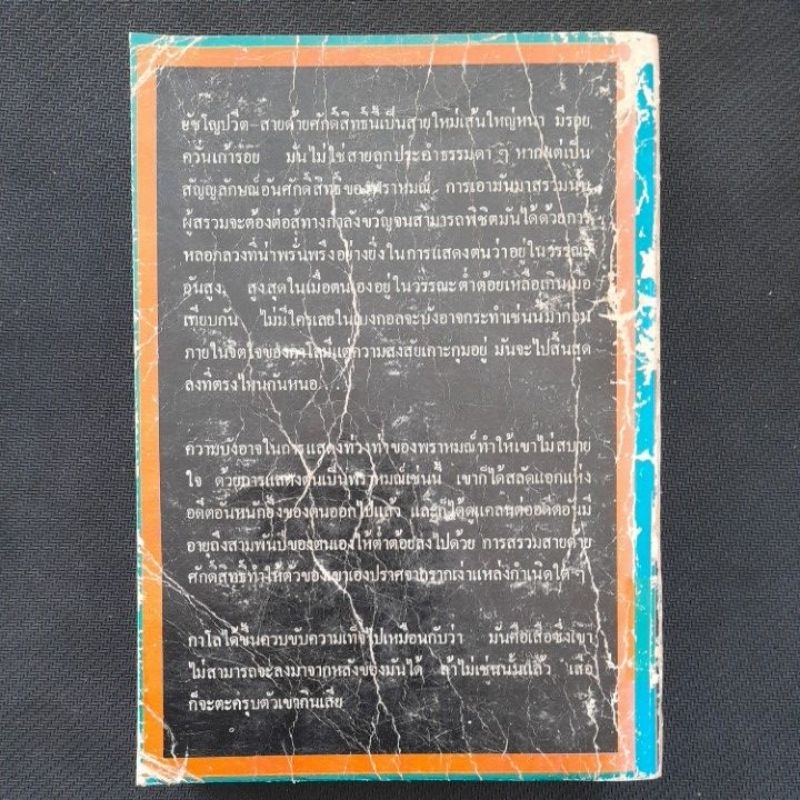 ยัชโญปวีต สายด้ายศักดิ์สิทธิ์นี้เป็นสายใหม่เส้นใหญ่หนา มีรอย
ควั่นเก้ารอย มันไม่ใช่สายลูกประคำธรรมดา ๆ หากแต่เป็น
สัญญลักษณ์อันศักดิ์สิทธิ์ของพราหมณ์ การเอามันมาสรวมนั้น
ผู้สรวมจะต้องต่อสู้ทางกำลังขวัญจนสามารถพิชิตมันได้ด้วยการ
หลอกลวงที่น่าพรั่นพรึงอย่างยิ่งในการแสดงตนว่าอยู่ในวรรณะ
อันสูง สูงสุดในเมื่อตนเองอยู่ในวรรณะต่ำต้อยเหลือเกินเมื่อ
เทียบกัน ไม่มีใครเลยในเบงกอลจะบังอาจกระทำเช่นนี้มาก่อน
ภายในจิตใจของกาโลมีแต่ความสงสัยเกาะกุมอยู่ มันจะไปสิ้นสุด
ลงที่ตรงไหนกันหนอ . . .
ความบังอาจในการแสดงท่วงท่าของพราหมณ์ทำให้เขาไม่สบาย
ใจ ด้วยการแสดงตนเป็นพราหมณ์เช่นนี้ เขาก็ได้สลัดแอกแห่ง
อดีตอันหนักอึ้งของตนออกไปแล้ว และก็ได้ดูแคลนต่ออดีตอันมี
อายุถึงสามพันปีของตนเองให้ต่ำต้อยลงไปด้วย การสรวมสายด้าย
ศักดิ์สิทธิ์ทำให้ตัวของเขาเองปราศจากรากเง่าแหล่งกำเนิดใด ๆ
กาโลได้ขึ้นควบขับความเท็จไปเหมือนกับว่า มันคือเสือซึ่งเขา
ไม่สามารถจะลงมาจากหลังของมันได้ ถ้าไม่เช่นนั้นแล้ว เสือ
ก็จะตะครุบตัวเขากินเสีย